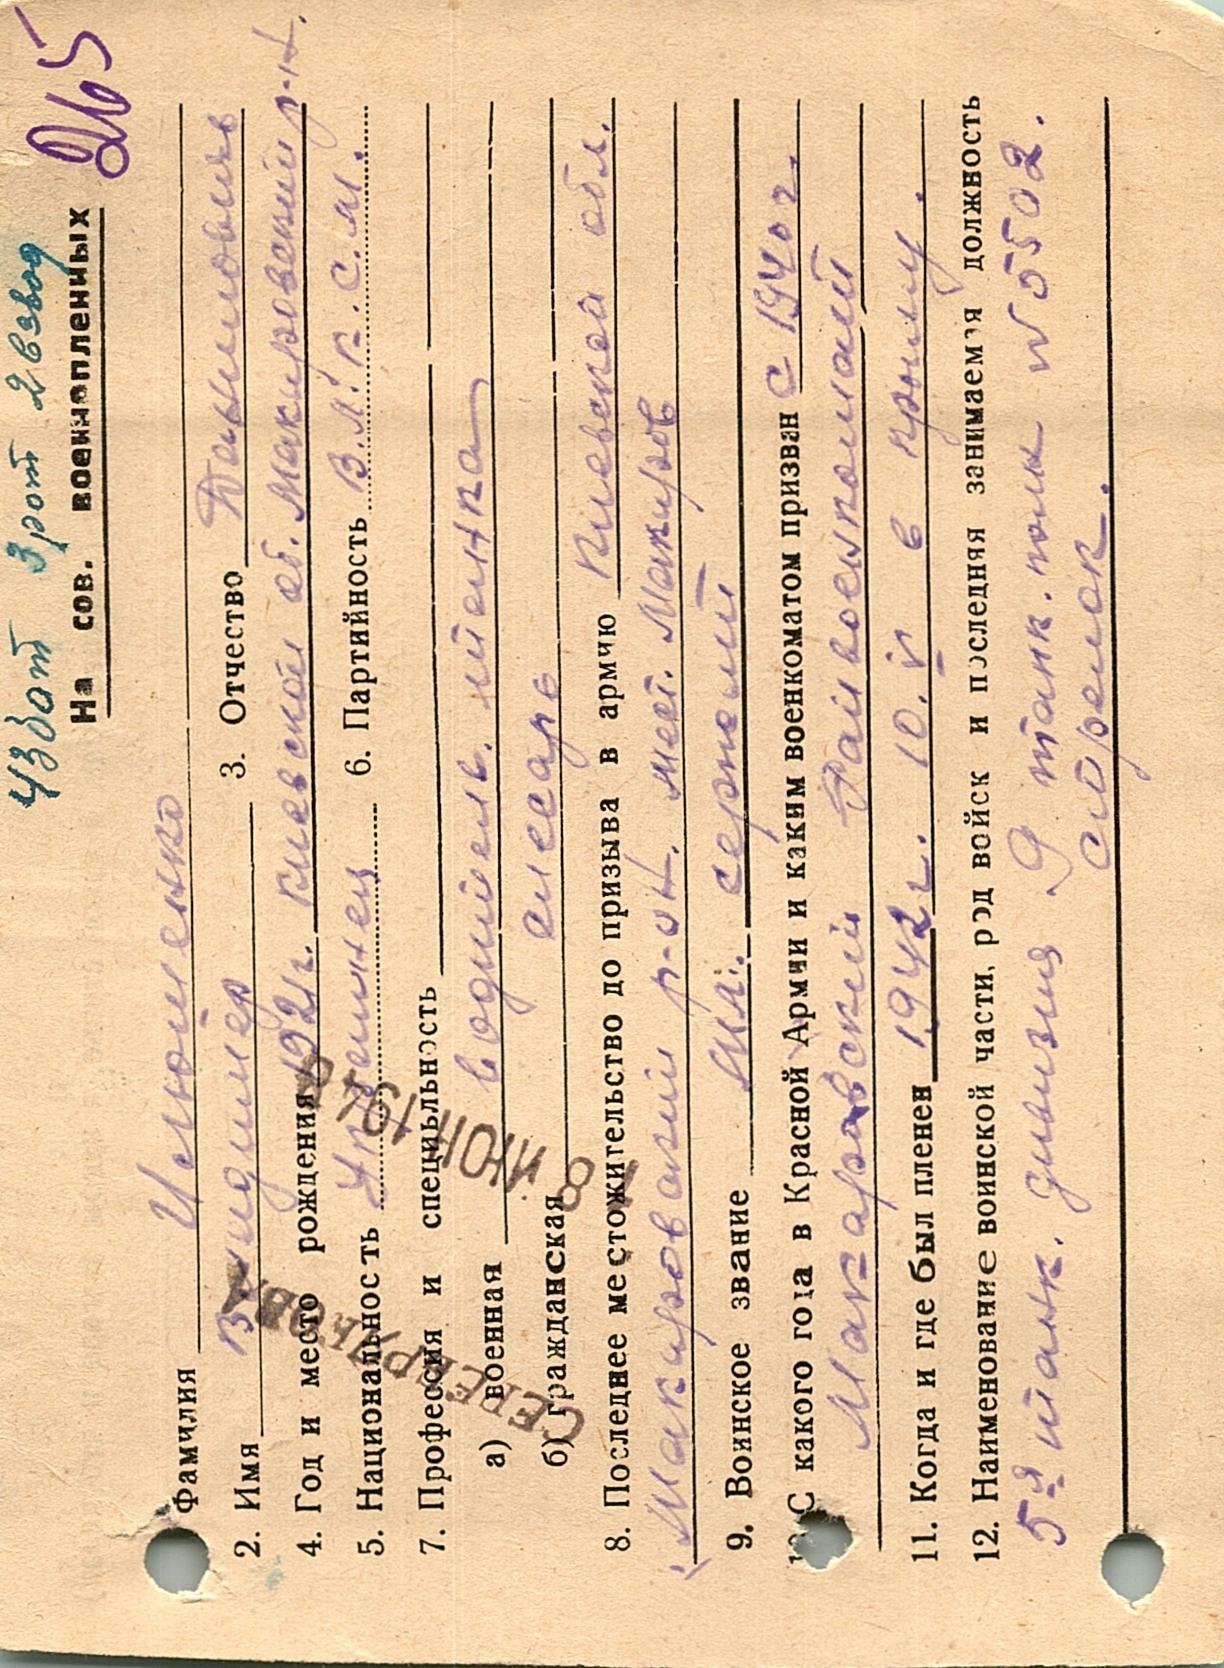 4 збат 3 рот 2 взвод
265
На сов. военнопленных
Фамилия
2. Имя Владимир 3. Отчество Данилович
4. Год и место рождения 1921г. Киевской об. Макаровский р-н.
5. Национальность Украинец 6. Партийность В.Л.К.С.М.
7. Профессия и специальность
а) военная водитель танка
б) гражданская слесарь
8. Последнее местожительство до призыва в армию Киевской обл.
Макаровский р-он. мест. Макаров
9. Воинское звание мл. сержант
10 С какого года в Красной Армии и каким военкоматом призван С 1940 г.
Макаровский Райвоенкомат
11. Когда и где был пленен 1942г. 10. V в крыму.
12. Наименование воинской части, род войск и последняя занимаемая должность
5-я танк. дивизия 9 танк. полк № 5502.
Стрелок.
СЕРЕБРЯКОВА
18 ИЮН 1948